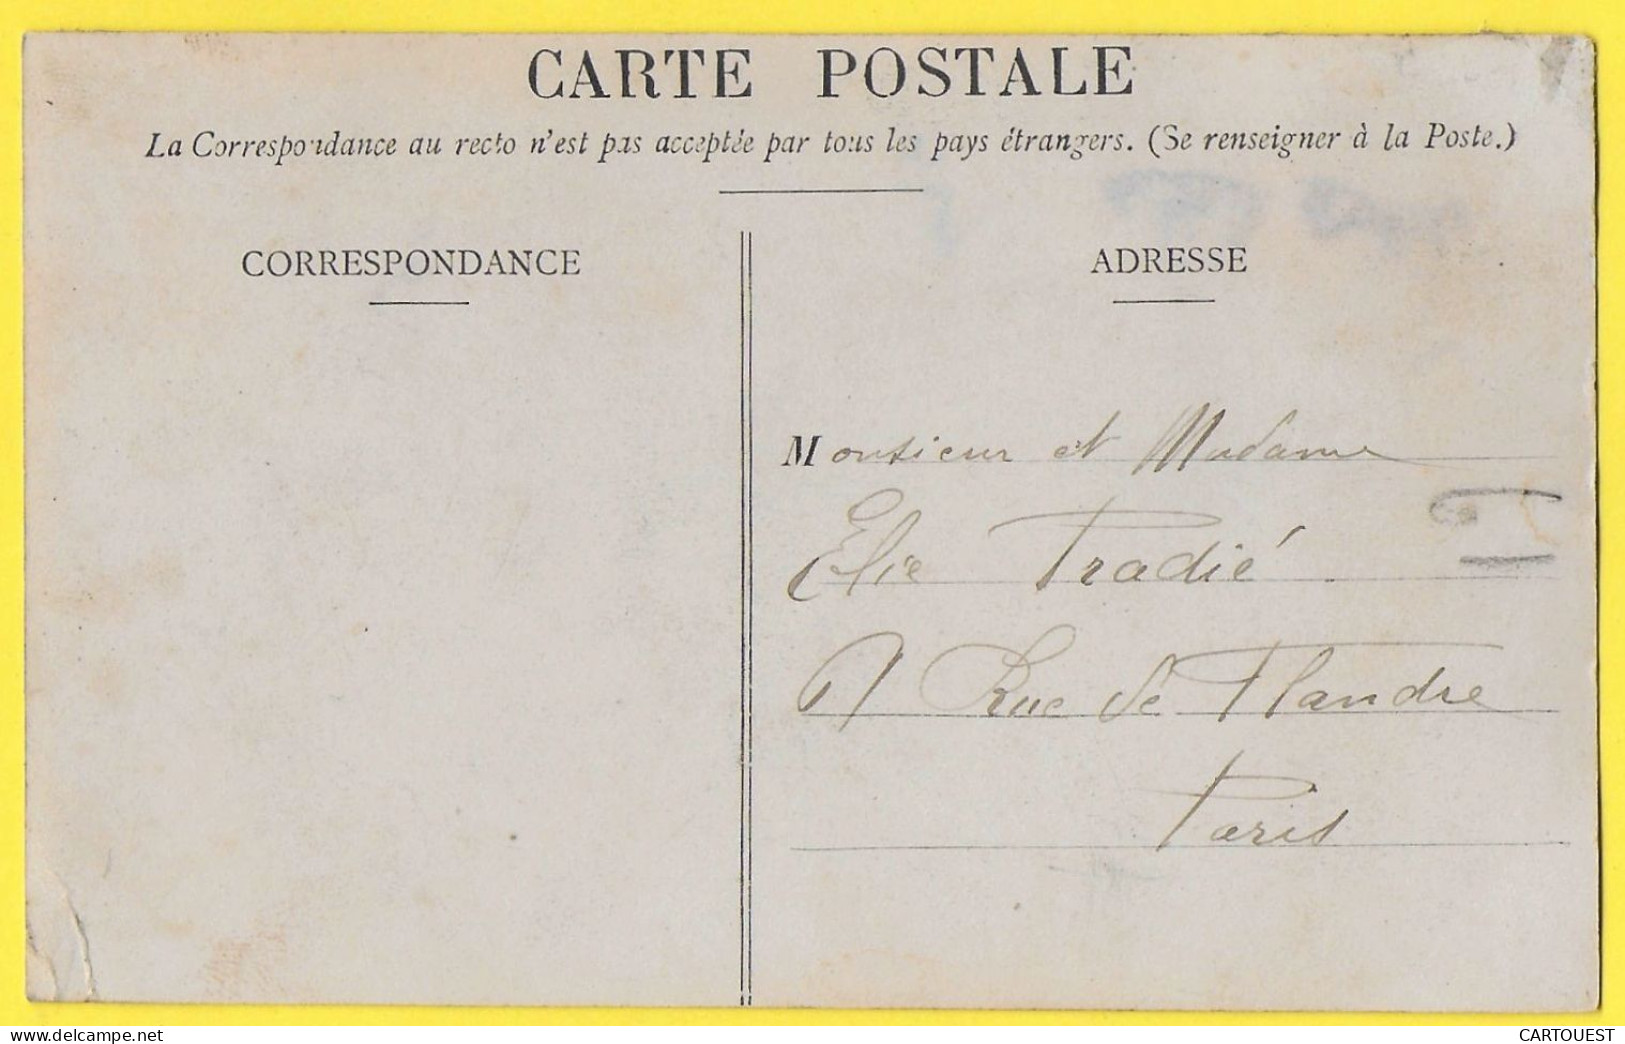 CARTE POSTALE
La Correspondance au recto n'est pas acceptée par tous les pays étrangers. (Se renseigner à la Poste.)
CORRESPONDANCE
ADRESSE
Monsieur et Madame
Elie Pradié
Rue de Flandre
Paris
delcampe.net
CARTOUEST